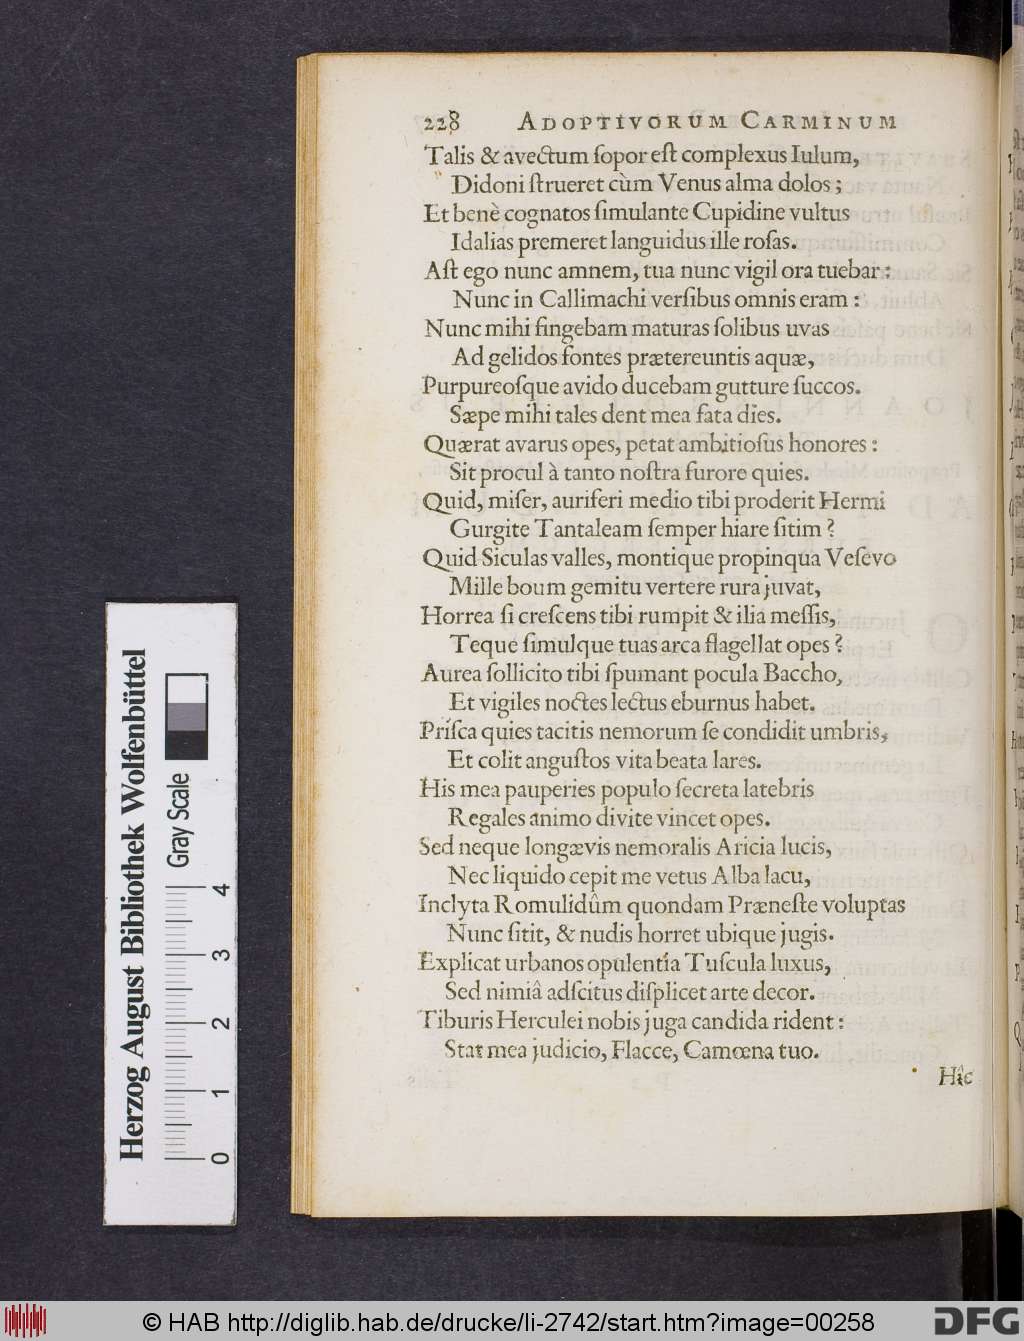 228 ADOPTIVORUM CARMINUM
Talis & avectum ſopor eſt complexus Iulum,
Didoni ſtrueret cùm Venus alma dolos;
Et benè cognatos ſimulante Cupidine vultus
Idalias premeret languidus ille roſas.
Aſt ego nunc amnem, tua nunc vigil ora tuebar:
Nunc in Callimachi verſibus omnis eram:
Nunc mihi fingebam maturas ſolibus uvas
Ad gelidos fontes prætereuntis aquæ,
Purpureoſque avido ducebam gutture ſuccos.
Sæpe mihi tales dent mea fata dies.
Quærat avarus opes, petat ambitioſus honores:
Sit procul à tanto noſtra furore quies.
Quid, miſer, auriferi medio tibi proderit Hermi
Gurgite Tantaleam ſemper hiare ſitim?
Quid Siculas valles, montique propinqua Veſevo
Mille boum gemitu vertere rura juvat,
Horrea ſi creſcens tibi rumpit & ilia meſſis,
Teque ſimulque tuas arca flagellat opes?
Aurea ſollicito tibi ſpumant pocula Baccho,
Et vigiles noctes lectus eburnus habet.
Priſca quies tacitis nemorum ſe condidit umbris,
Et colit anguſtos vita beata lares.
His mea pauperies populo ſecreta latebris
Regales animo divite vincet opes.
Sed neque longævis nemoralis Aricia lucis,
Nec liquido cepit me vetus Alba lacu,
Inclyta Romulidûm quondam Præneſte voluptas
Nunc ſitit, & nudis horret ubique jugis.
Explicat urbanos opulentia Tuſcula luxus,
Sed nimiâ adſcitus diſplicet arte decor.
Tiburis Herculei nobis juga candida rident:
Stat mea judicio, Flacce, Camœna tuo.
Hîc
Herzog August Bibliothek Wolfenbüttel
Gray Scale
0 1 2 3 4
© HAB http://diglib.hab.de/drucke/li-2742/start.htm?image=00258
DFG